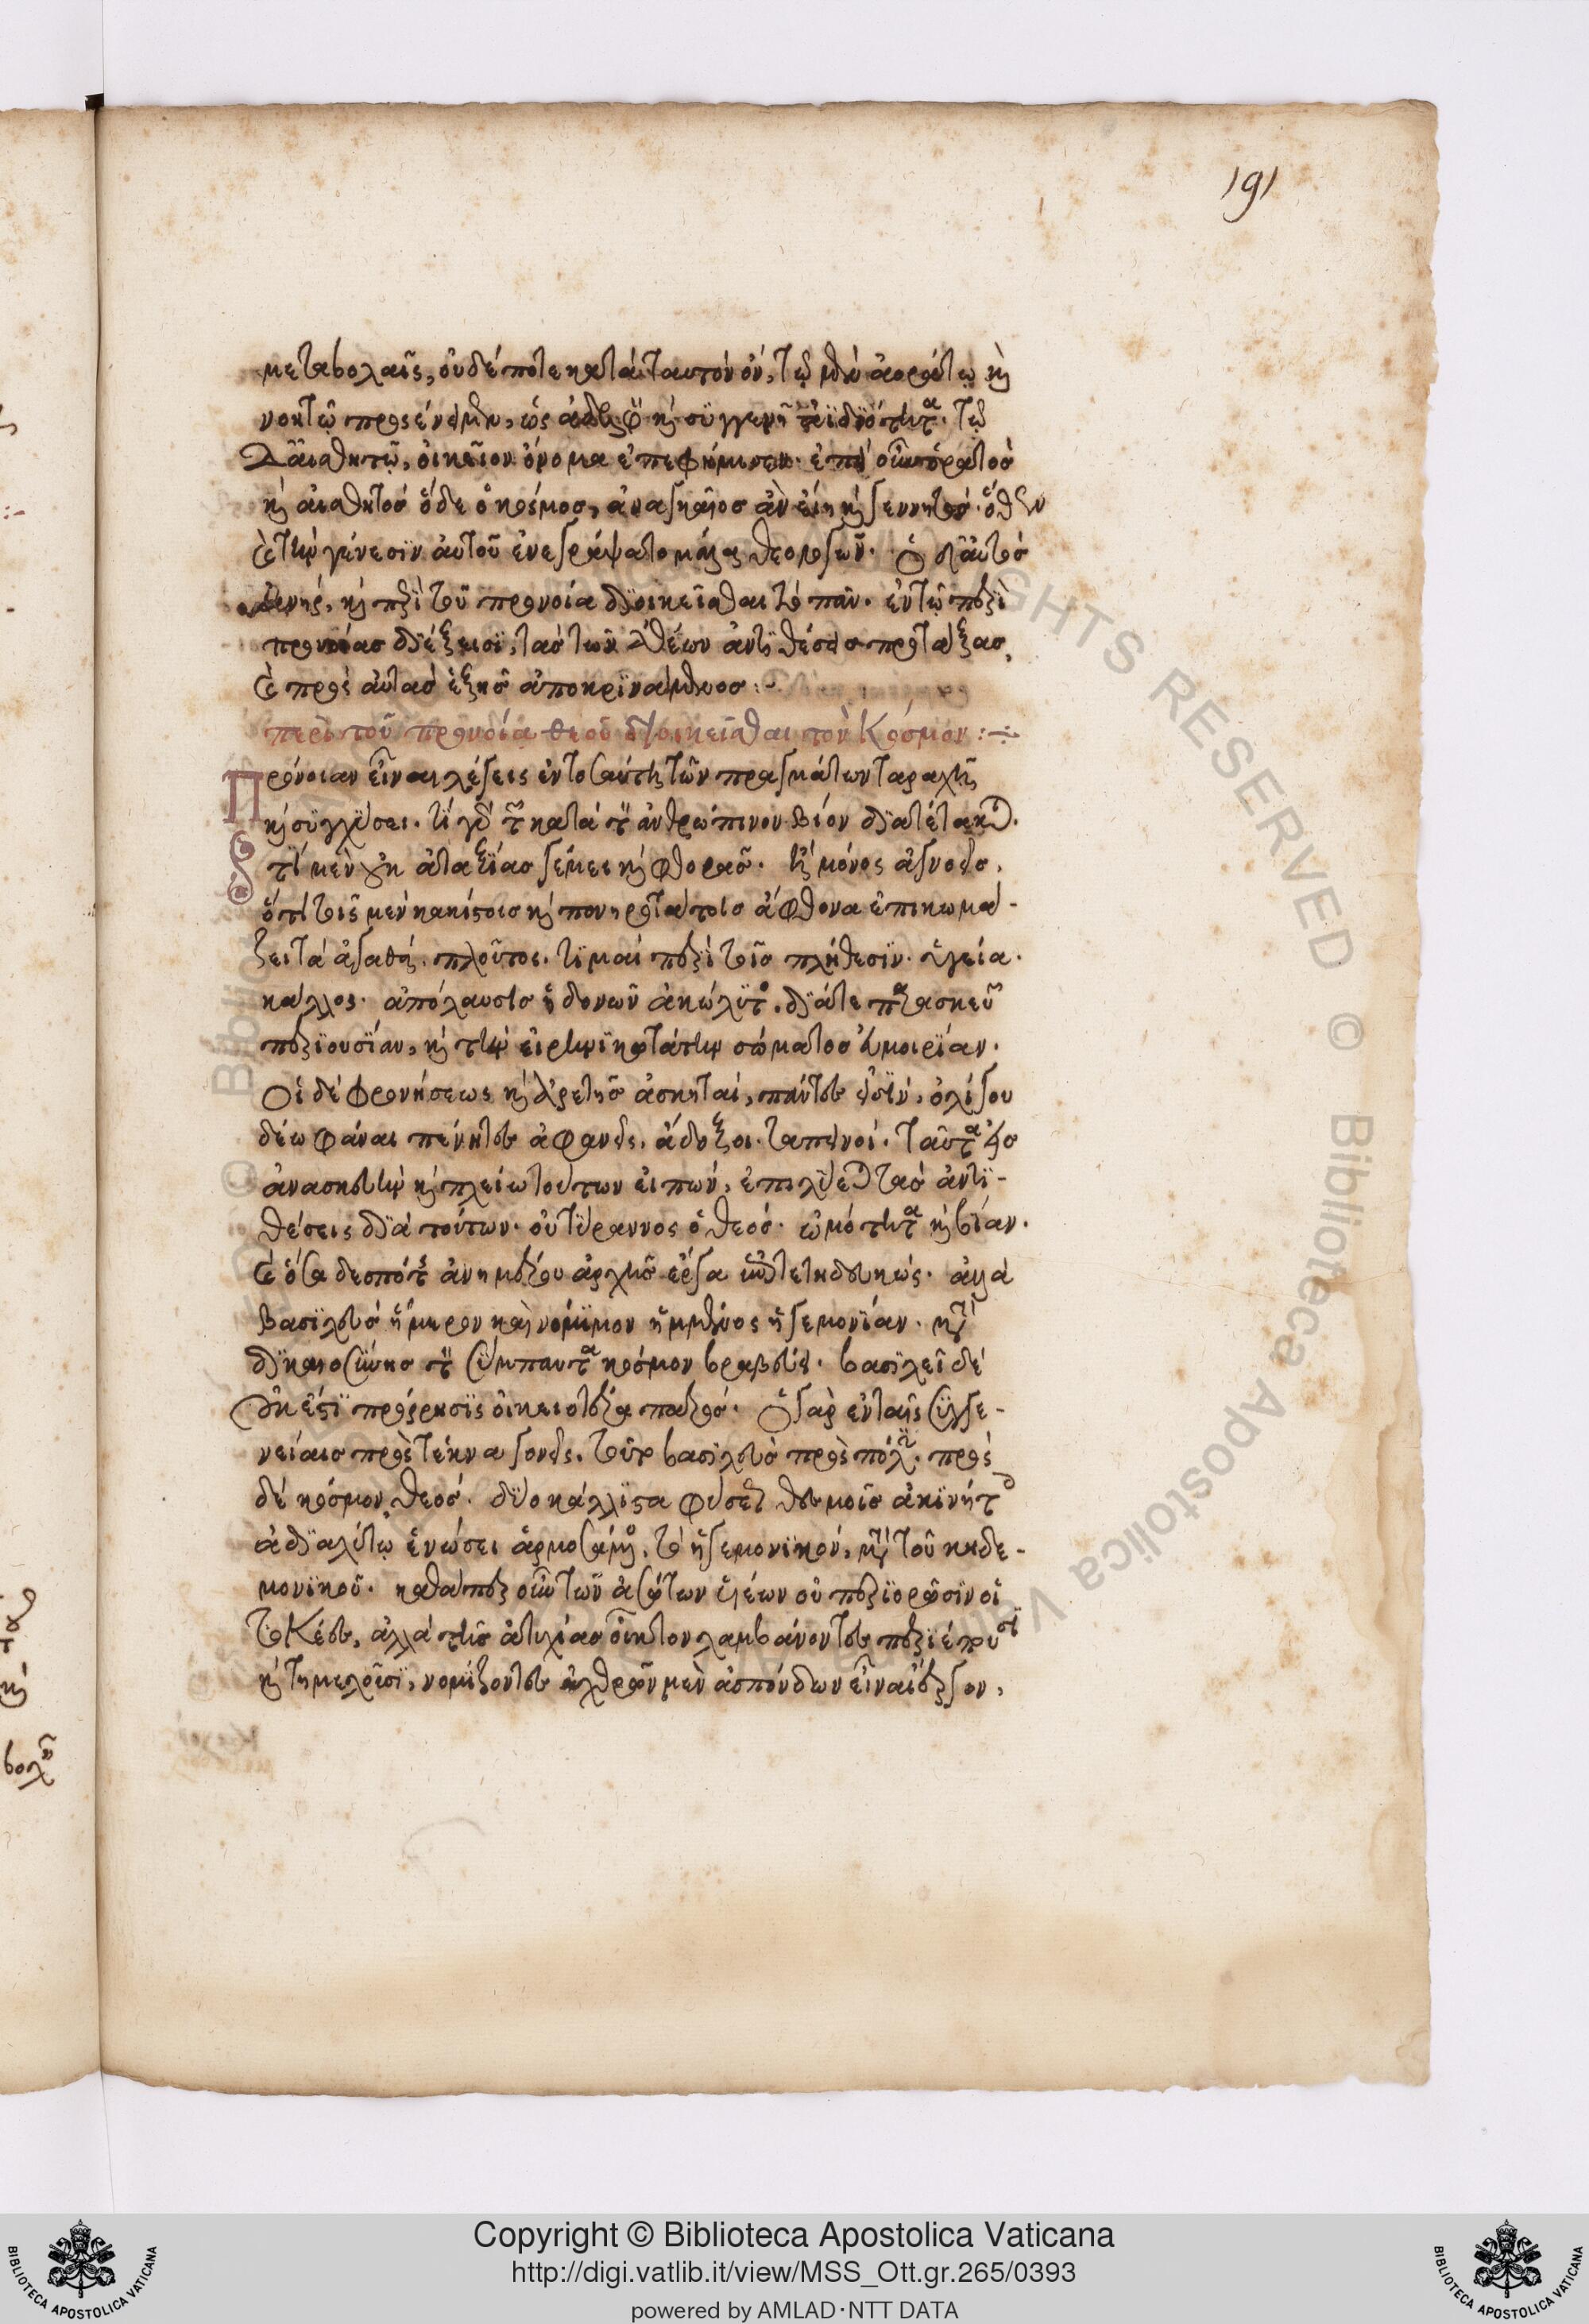 191
μεταβολαῖς, οὐδέποτε κατὰ ταυτὸν ὄν, τῷ μὲν ἀοράτῳ καὶ
νοητῷ προσένειμεν, ὡς ἀδελφὸν καὶ συγγενῆ ἀϊδιότητα. τῷ
δ' αἰσθητῷ, οἰκεῖον ὄνομα ἐπεφήμισεν. ἐπεὶ οὖν ὁρατὸς
καὶ αἰσθητὸς ὅδε ὁ κόσμος, ἀναγκαίως ἂν εἴη καὶ γεννητός. ὅθεν
καὶ τὴν γένεσιν αὐτοῦ ἀνεγράψατο μάλα θεολογῶν. ὁ δ' αὐτὸς
καὶ περὶ τοῦ προνοίᾳ διοικεῖσθαι τὸ πᾶν. ἐν τῷ περὶ
προνοίας διέξεισι, τὰς τῶν ἀθέων ἀντιθέσεις προτάξας,
καὶ πρὸς αὐτὰς ἑξῆς ἀποκρινάμενος :-
περὶ τοῦ προνοίᾳ θεοῦ διοικεῖσθαι τὸν Κόσμον :-
Πρόνοιαν εἶναι λέγεις ἐν τοσαύτῃ τῶν πραγμάτων ταραχῇ
καὶ συγχύσει. τί γὰρ τῶν κατὰ τὸν ἀνθρώπινον βίον διατέτακται.
τί μὲν οὐκ ἀταξίας γέμει καὶ φθορᾶς. ἢ μόνος ἀγνοεῖς,
ὅτι τοῖς μὲν κακίστοις καὶ πονηροτάτοις ἄφθονα ἐπικωμά-
ζει τὰ ἀγαθά. πλοῦτος. τιμαὶ περὶ τοῖς πλήθεσιν. ὑγεία.
κάλλος. ἀπόλαυσις ἡδονῶν ἀκώλυτος. διά τε παρασκευῶν
περιουσίαν, καὶ τὴν εἰρηνικωτάτην σώματος εὐμοιρίαν.
Οἱ δὲ φρονήσεως καὶ ἀρετῆς ἀσκηταί, πάντες εἰσίν, ὀλίγου
δέω φάναι πένητες ἀφανεῖς. ἄδοξοι. ταπεινοί. ταῦτα εἰς
ἀνασκευὴν καὶ πλείω τούτων εἰπών, ἐπιλύεται τὰς ἀντι-
θέσεις διὰ τούτων. οὐ τύραννος ὁ θεός. ὠμότητα καὶ βίαν.
καὶ ὅσα δεσπότου ἀνημέρου ἀρχῆς ἔργα ἐπιτετηδευκώς. ἀλλὰ
βασιλεὺς ἥμερον καὶ νόμιμον ἀνημμένος ἡγεμονίαν. μετὰ
δικαιοσύνης τὸν σύμπαντα κόσμον βραβεύει. βασιλεῖ δὲ
οὐκ ἔστι πρόσρησις οἰκειοτέρα πατρός. Ὃ γὰρ ἐν ταῖς συγγε-
νείαις πρὸς τέκνα γονεῖς. τοῦτο βασιλεὺς πρὸς πόλιν. πρὸς
δὲ κόσμον θεός. δύο κάλλιστα φύσεως θεσμοῖς ἀκινήτοις
ἀδιαλύτῳ ἑνώσει ἁρμοσάμενος, τὸ ἡγεμονικόν, μετὰ τοῦ κηδε-
μονικοῦ. καθάπερ οὖν τῶν ἀσώτων υἱέων οὐ περιορῶσιν οἱ
τοκέες, ἀλλὰ τῆς ἀτυχίας οἶκτον λαμβάνοντες περιέπουσι
καὶ τημελοῦσι, νομίζοντες ἐχθρῶν μὲν ἀσπόνδων εἶναι ἔργον,
Copyright © Biblioteca Apostolica Vaticana
http://digi.vatlib.it/view/MSS_Ott.gr.265/0393
powered by AMLAD·NTT DATA